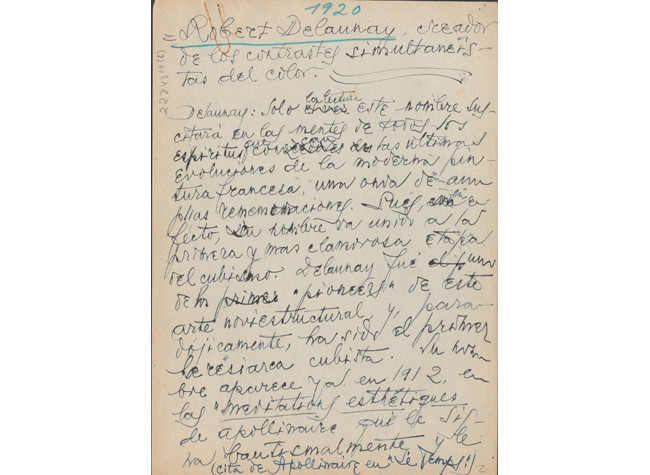 1920
= Robert Delaunay, creador
de los contrastes simultaneís-
tas del color.
22243/1(6)
la lectura
Delaunay: Solo este nombre sus-
citará en las mentes de todos los
espíritus que las últimas
evoluciones de la moderna pin-
tura francesa, una onda de am-
plias rememoraciones. Pues, en e-
fecto, su nombre va unido a la
primera y mas clamorosa etapa
del cubismo. Delaunay fué el p uno
de los primer "pioneers" de este
arte noviestructural y, para-
dójicamente, ha sido el primer
heresiarca cubista. Su nom
bre aparece ya en 1912, en
las "Meditations esthétiques
de Apollinaire que le sig-
na bautismalmente y le
(cita de Apollinaire en "Le Temps")